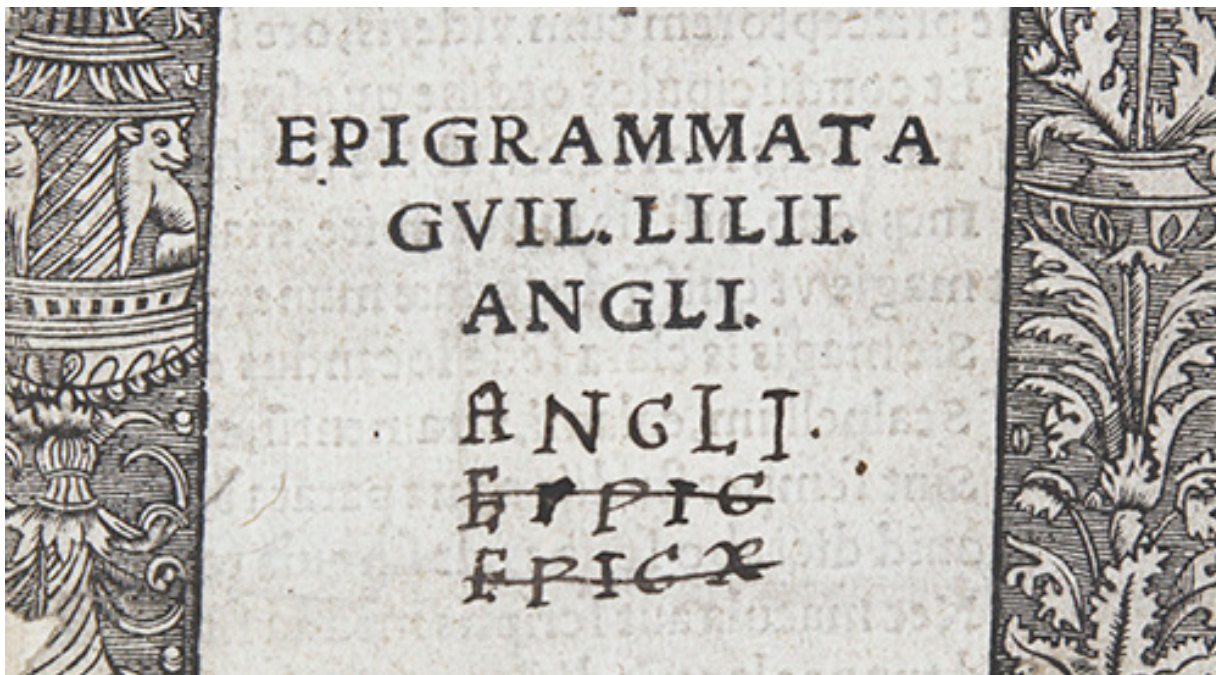 EPIGRAMMATA
GVIL. LILII.
ANGLI.
ANGLI.
EPIG
EPIGR